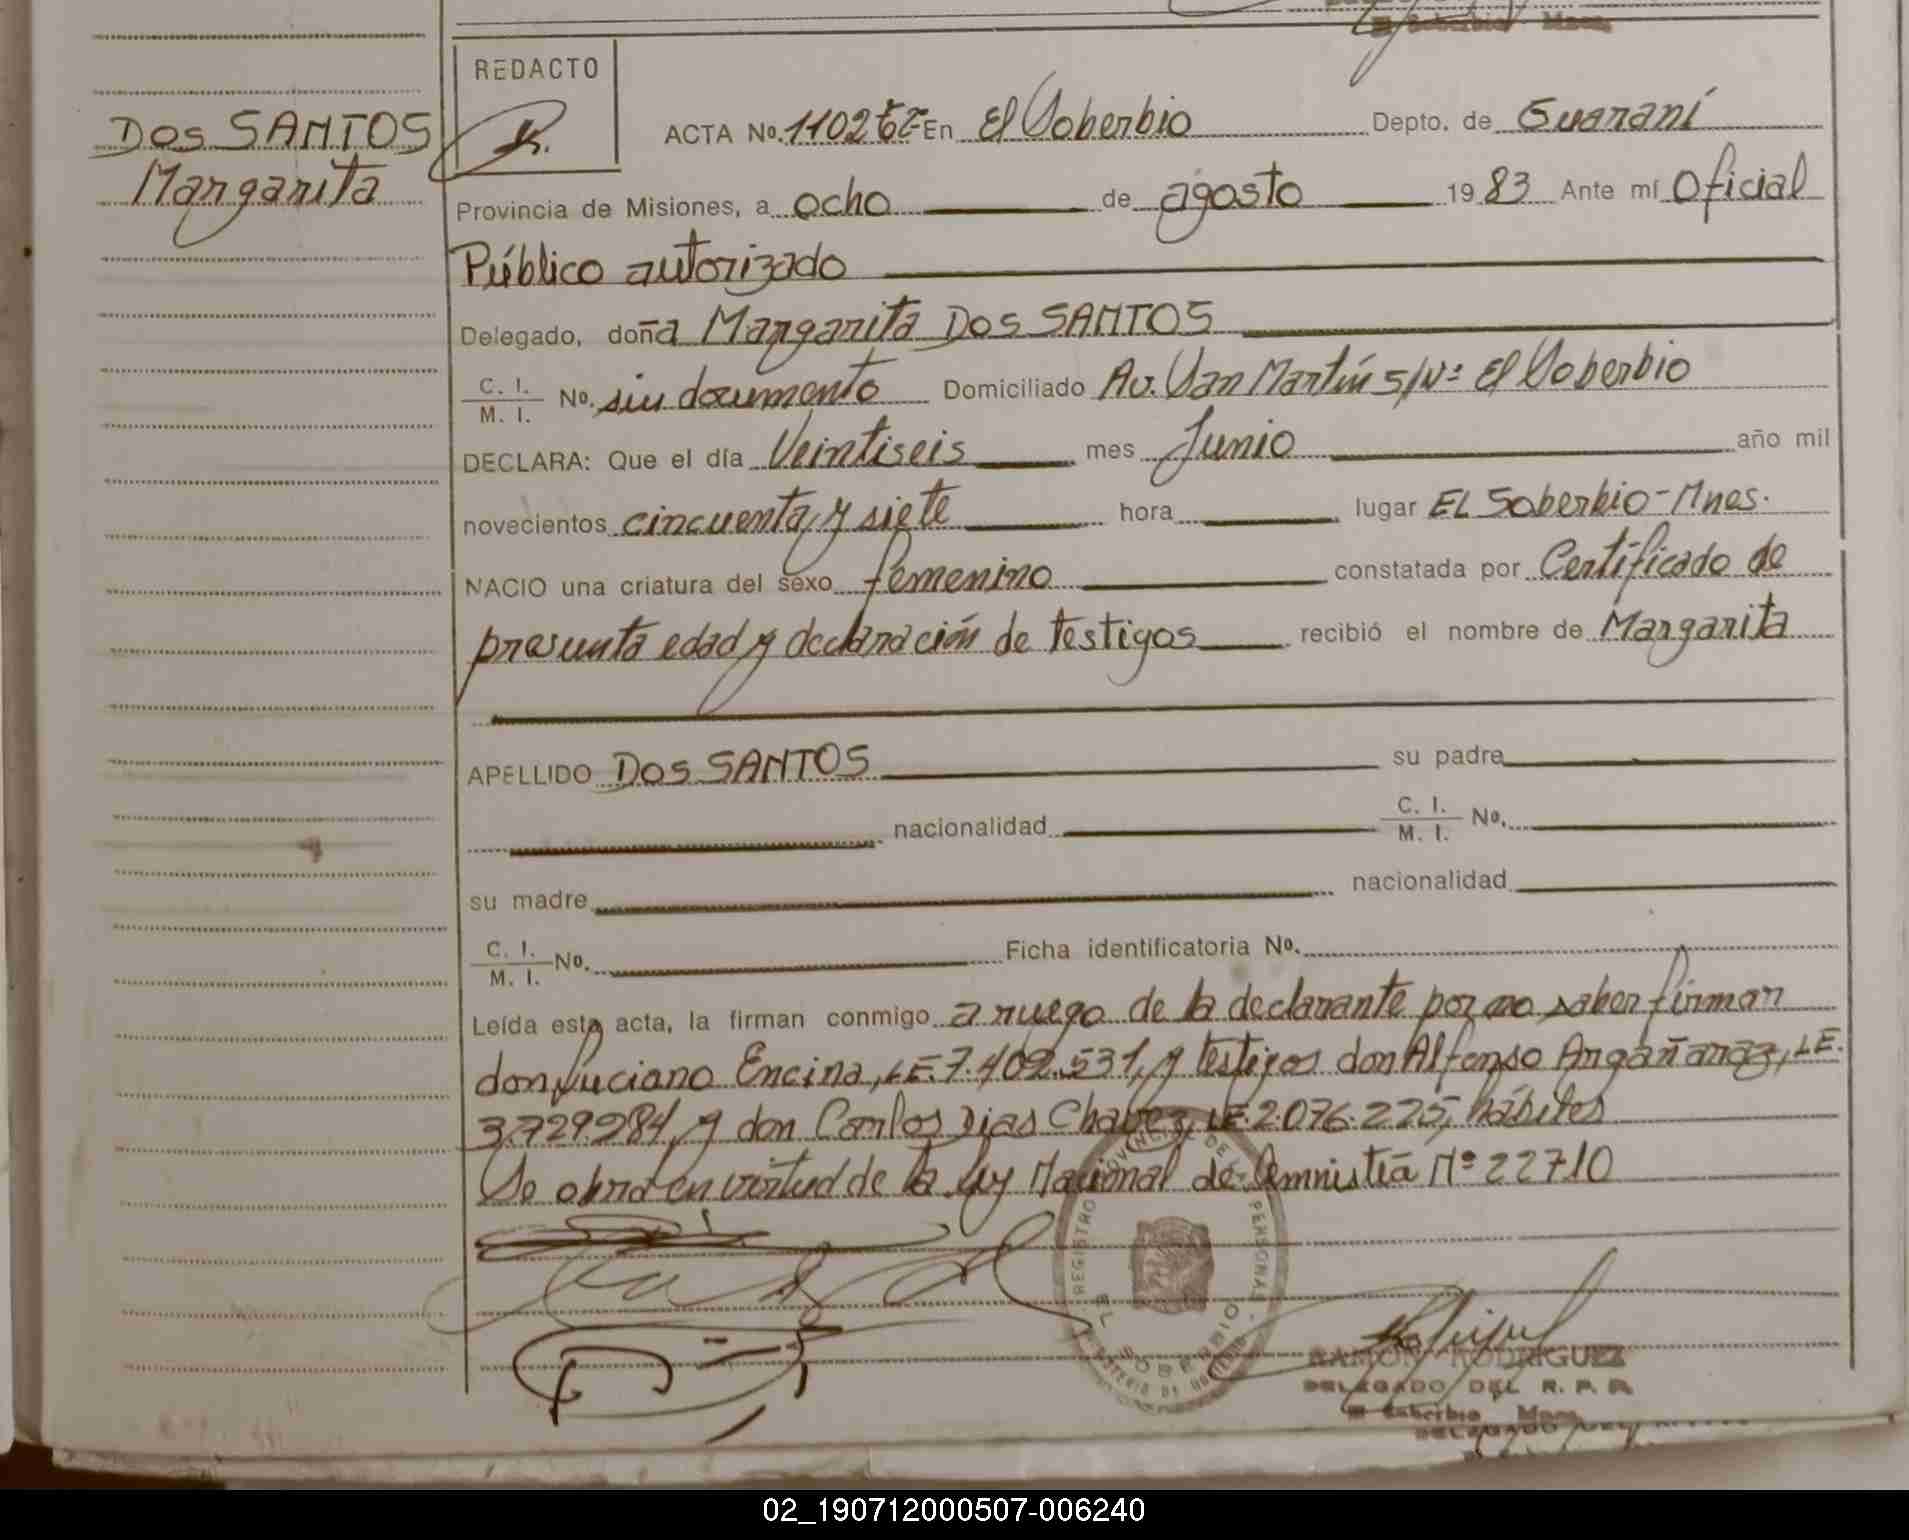 REDACTO
DOS SANTOS
Margarita
ACTA No. 1102 En El Soberbio Depto. de Guaraní
Provincia de Misiones, a ocho de agosto 1983 Ante mí Oficial
Público autorizado
Delegado, doña Margarita DOS SANTOS
C. I. / M. I. No. sin documento Domiciliado Av. San Martín S/Nº El Soberbio
DECLARA: Que el día Veintiseis mes Junio año mil
novecientos cincuenta y siete hora lugar EL Soberbio-Mnes.
NACIO una criatura del sexo femenino constatada por Certificado de
presunta edad y declaración de testigos recibió el nombre de Margarita
APELLIDO DOS SANTOS su padre
nacionalidad C. I. / M. I. No.
su madre nacionalidad
C. I. / M. I. No. Ficha identificatoria No.
Leída esta acta, la firman conmigo a ruego de la declarante por no saber firmar
don Luciano Encina, LE. 7.409.531, y testigos don Alfonso Argañaraz, LE.
3.729.284, y don Carlos Dias Chavez, LE. 2.076.225, hábiles
Se obra en virtud de la Ley Nacional de Amnistía Nº 22710
REGISTRO PROVINCIAL DE PERSONAS
EL SOBERBIO
RAMON RODRIGUEZ
DELEGADO DEL R. P. P.
El Soberbio Mnes.
02_190712000507-006240